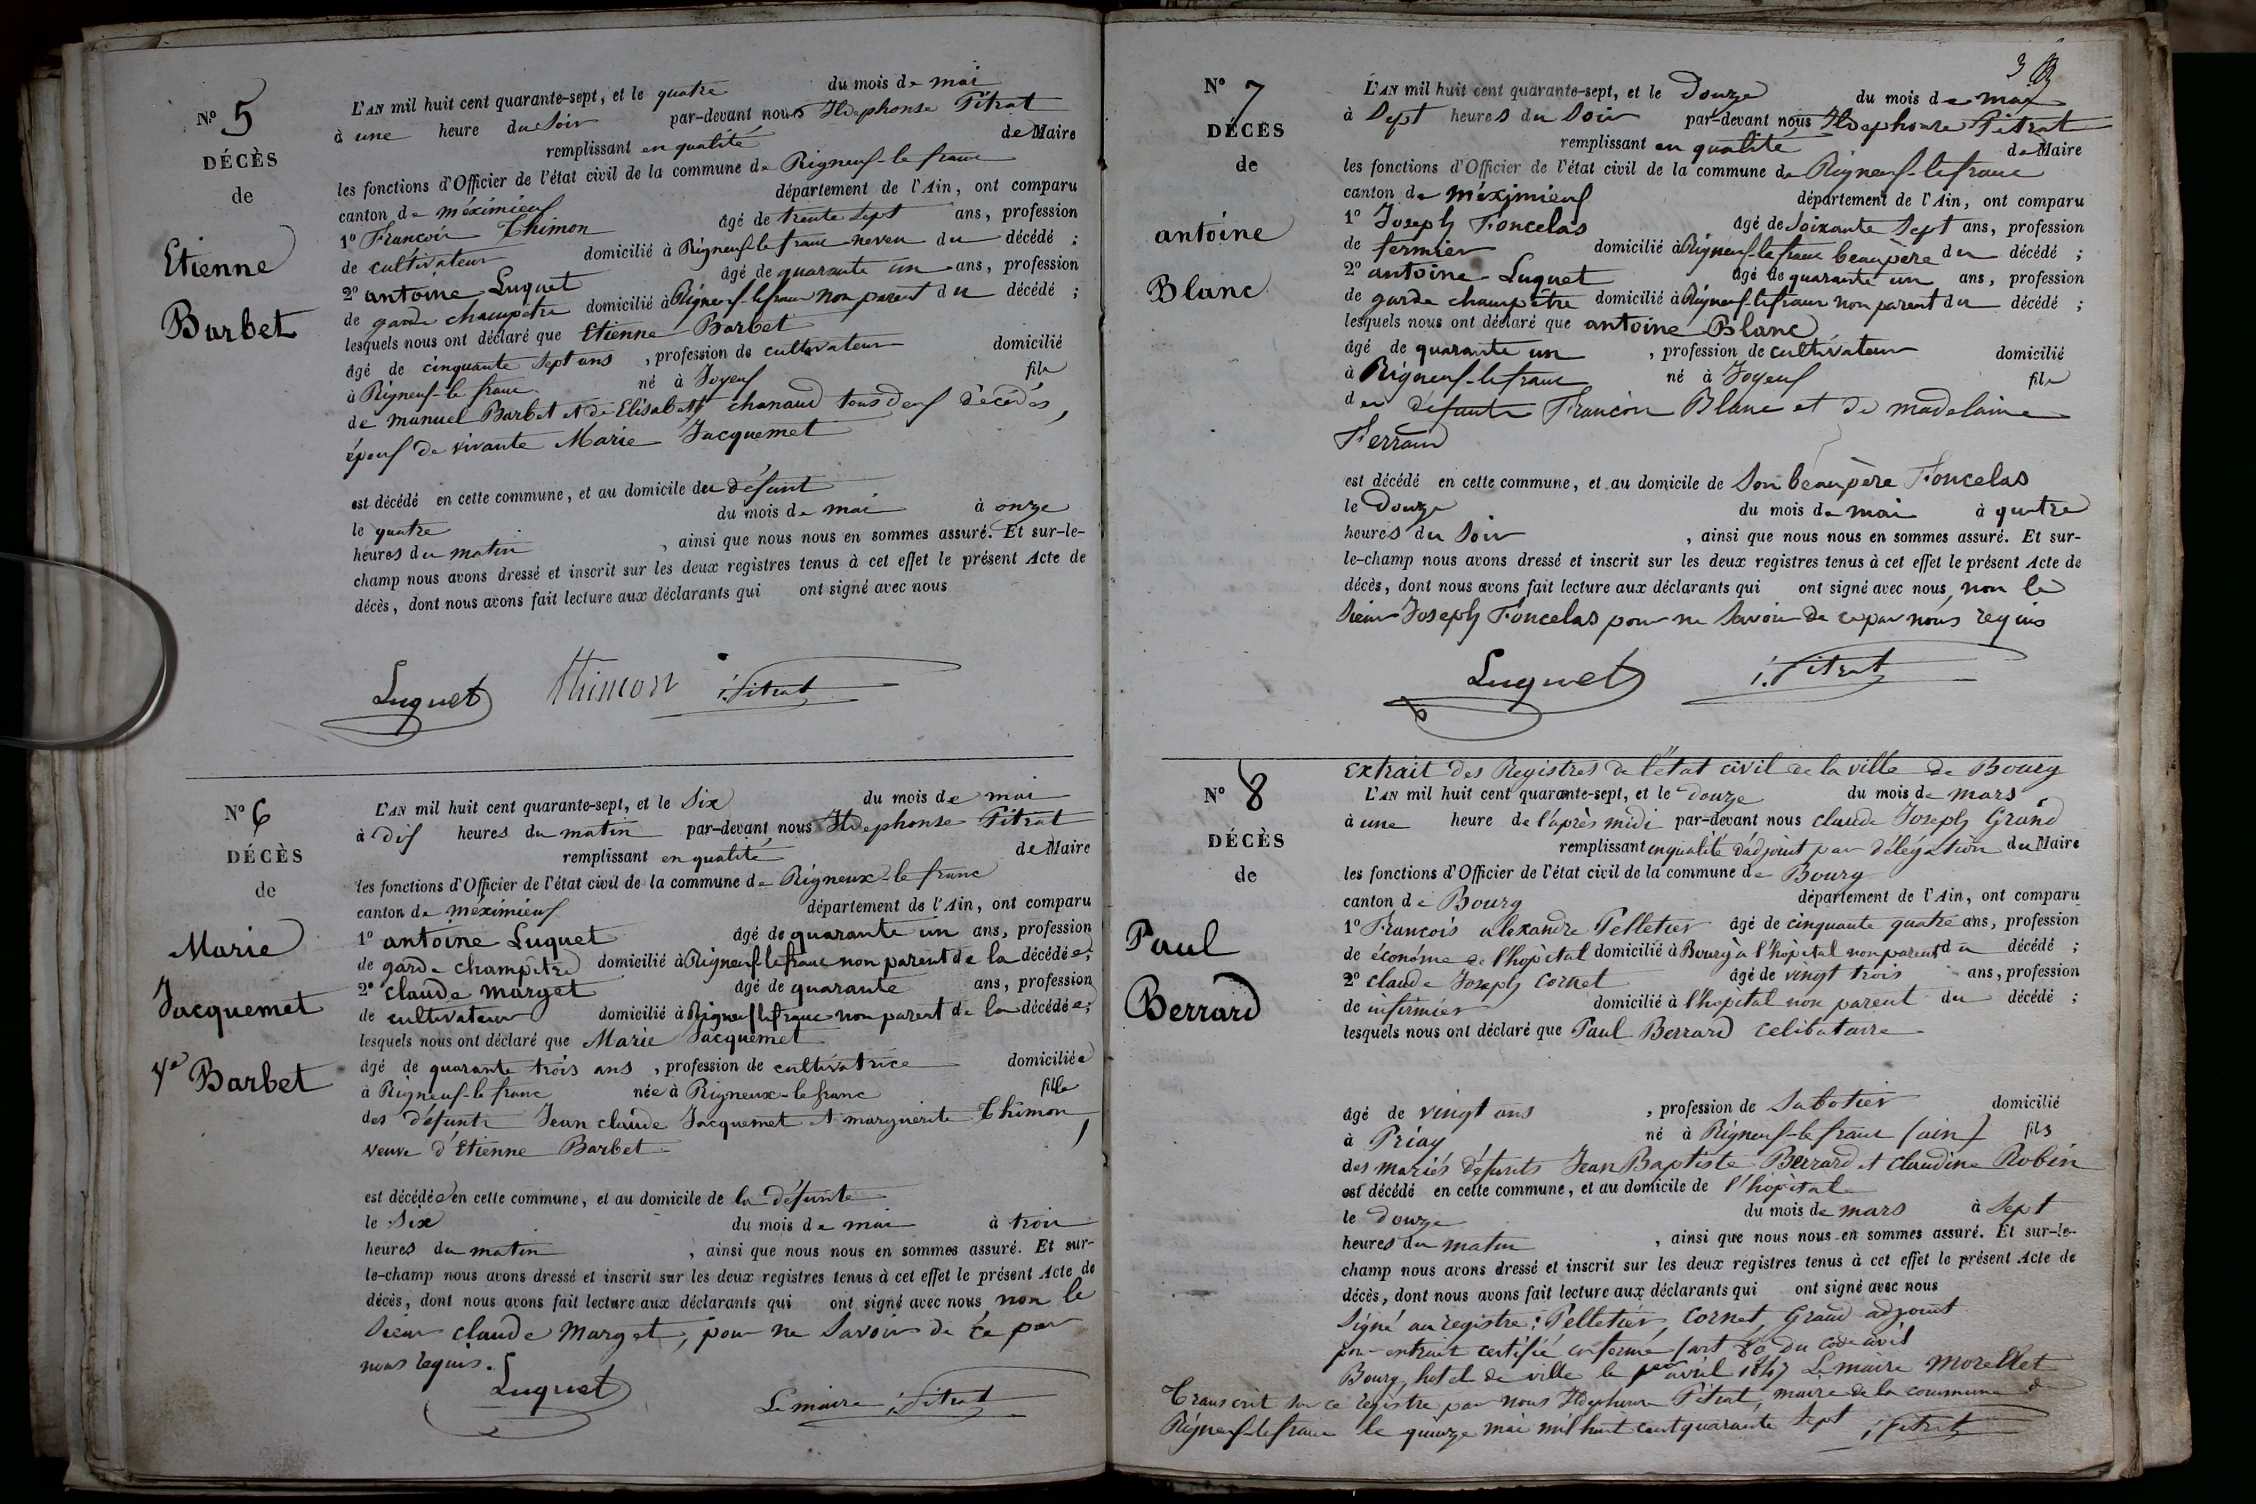 N° 5
DÉCÈS
de
Etienne
Barbet
L'AN mil huit cent quarante-sept, et le quatre du mois de mai
à une heure du soir par-devant nous Ildephonse Pitrat
remplissant en qualité de Maire
les fonctions d'Officier de l'état civil de la commune de Rigneuf-le franc
canton de méximieuf département de l'Ain, ont comparu
1° Francois Thimon âgé de trente sept ans, profession
de cultivateur domicilié à Rigneuf-le franc neveu du décédé ;
2° antoine Luquet âgé de quarante un ans, profession
de garde champetre domicilié à Rigneuf-lefranc non parent du décédé ;
lesquels nous ont déclaré que Etienne Barbet
âgé de cinquante sept ans , profession de cultivateur domicilié
à Rigneuf-le franc né à Joyeuf fils
de manuel Barbet et de Elisabeth chanaud tous deuf décédés,
épouf de vivante Marie Jacquemet
est décédé en cette commune, et au domicile du défunt
le quatre du mois de mai à onze
heures du matin , ainsi que nous nous en sommes assuré. Et sur-le-
champ nous avons dressé et inscrit sur les deux registres tenus à cet effet le présent Acte de
décès, dont nous avons fait lecture aux déclarants qui ont signé avec nous
Luquet Thimon i. Pitrat
N° 6
DÉCÈS
de
Marie
Jacquemet
Ve Barbet
L'AN mil huit cent quarante-sept, et le six du mois de mai
à dif heures du matin par-devant nous Ildephonse Pitrat
remplissant en qualité de Maire
les fonctions d'Officier de l'état civil de la commune de Rigneux-le franc
canton de méximieuf département de l'Ain, ont comparu
1° antoine Luquet âgé de quarante un ans, profession
de garde champêtre domicilié à Rigneuf lefranc non parent de la décédée;
2° claude marget âgé de quarante ans, profession
de cultivateur domicilié à Rigneuf lefranc non parent de la décédée;
lesquels nous ont déclaré que Marie Jacquemet
âgé de quarante trois ans , profession de cultivatrice domiciliée
à Rigneuf-le franc née à Rigneux-le franc fille
des défunts Jean claude Jacquemet et marguerite Thimon,
veuve d'Etienne Barbet
est décédée en cette commune, et au domicile de la défunte
le six du mois de mai à trois
heures du matin , ainsi que nous nous en sommes assuré. Et sur-
le-champ nous avons dressé et inscrit sur les deux registres tenus à cet effet le présent Acte de
décès, dont nous avons fait lecture aux déclarants qui ont signé avec nous non le
sieur claude marget, pour ne savoir de ce par
nous requis.
Luquet Le maire i. Pitrat
3
N° 7
DÉCÈS
de
antoine
Blanc
L'AN mil huit cent quarante-sept, et le douze du mois de mai
à sept heures du soir par-devant nous Ildephonse Pitrat
remplissant en qualité de Maire
les fonctions d'Officier de l'état civil de la commune de Rigneuf-lefranc
canton de méximieuf département de l'Ain, ont comparu
1° Joseph Foncelas âgé de soixante sept ans, profession
de fermier domicilié à Rigneuf-lefranc beaupère du décédé ;
2° antoine Luquet âgé de quarante un ans, profession
de garde champêtre domicilié à Rigneuf-lefranc non parent du décédé ;
lesquels nous ont déclaré que antoine Blanc
âgé de quarante un , profession de cultivateur domicilié
à Rigneuf-lefranc né à Joyeuf fils
des défunts Francois Blanc et de madelaine
Ferraud
est décédé en cette commune, et au domicile de son beaupère Foncelas
le douze du mois de mai à quatre
heures du soir , ainsi que nous nous en sommes assuré. Et sur-
le-champ nous avons dressé et inscrit sur les deux registres tenus à cet effet le présent Acte de
décès, dont nous avons fait lecture aux déclarants qui ont signé avec nous, non le
sieur Joseph Foncelas pour ne savoir de ce par nous requis
Luquet i. Pitrat
Extrait des Registres de l'état civil de la ville de Bourg
N° 8
DÉCÈS
de
Paul
Berrard
L'AN mil huit cent quarante-sept, et le douze du mois de mars
à une heure de l'après midi par-devant nous claude Joseph Grand
remplissant en qualité d'adjoint par délégation du Maire
les fonctions d'Officier de l'état civil de la commune de Bourg
canton de Bourg département de l'Ain, ont comparu
1° Francois alexandre Pelletier âgé de cinquante quatre ans, profession
de économe de l'hôpital domicilié à Bourg à l'hôpital non parent du décédé ;
2° claude Joseph Cornet âgé de vingt trois ans, profession
de infirmier domicilié à l'hopital non parent du décédé ;
lesquels nous ont déclaré que Paul Berrard celibataire
âgé de vingt ans , profession de sabotier domicilié
à Priay né à Rigneuf-le franc (ain) fils
des mariés défunts Jean Baptiste Berrard et claudine Robin
est décédé en cette commune, et au domicile de l'hopital
le douze du mois de mars à sept
heures du matin , ainsi que nous nous en sommes assuré. Et sur-le-
champ nous avons dressé et inscrit sur les deux registres tenus à cet effet le présent Acte de
décès, dont nous avons fait lecture aux déclarants qui ont signé avec nous
signé au registre : Pelletier, Cornet, Grand adjoint
pour extrait certifié conforme (art 80 du code civil
Bourg, hotel de ville le 1er avril 1847 Le maire Morellet
Transcrit sur ce registre par nous Ildephonse Pitrat, maire de la commune de
Rigneuf-lefranc le quinze mai mil huit cent quarante sept i. Pitrat